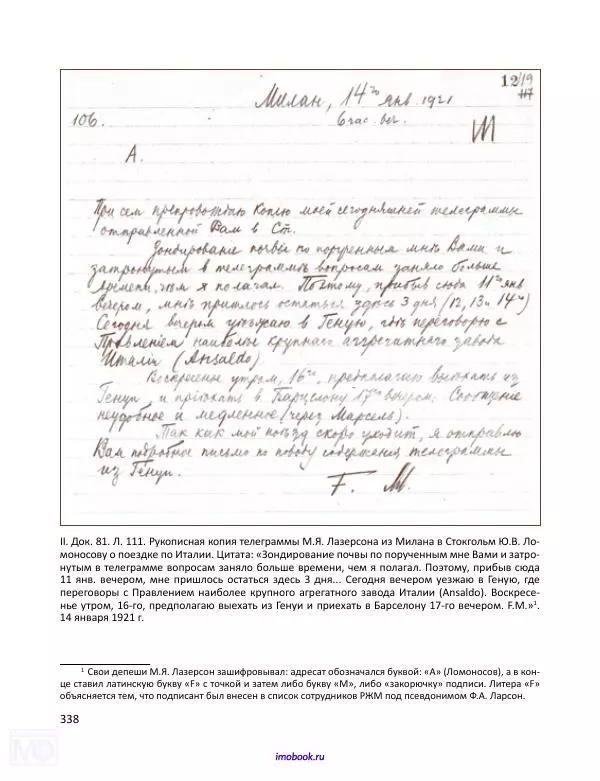 12/19
117
Милан, 14го янв. 1921
6 час. веч.
106.
М
А.
При сем препровождаю копию моей сегодняшней телеграммы
отправленной Вам в Ст.
Зондирование почвы по порученным мнѣ Вами и
затронутым в телеграммѣ вопросам заняло больше
времени, чѣм я полагал. Поэтому, прибыв сюда 11го янв
вечером, мнѣ пришлось остаться здѣсь 3 дня (12, 13 и 14го)
Сегодня вечером уѣзжаю в Геную, гдѣ переговорю с
Правлением наиболѣе крупнаго агрегатнаго завода
Италіи (Ansaldo)
Воскресенье утром, 16го, предполагаю выѣхать из
Генуи, и пріѣхать в Барцелону 17го вечером. Сообщение
неудобное и медленное (через Марсель).
Так как мой поѣзд скоро уходит, я отправлю
Вам подробное письмо по поводу содержания телеграммы
из Генуи.
F. М.
II. Док. 81. Л. 111. Рукописная копия телеграммы М.Я. Лазерсона из Милана в Стокгольм Ю.В. Ло-
моносову о поездке по Италии. Цитата: «Зондирование почвы по порученным мне Вами и затро-
нутым в телеграмме вопросам заняло больше времени, чем я полагал. Поэтому, прибыв сюда
11 янв. вечером, мне пришлось остаться здесь 3 дня... Сегодня вечером уезжаю в Геную, где
переговоры с Правлением наиболее крупного агрегатного завода Италии (Ansaldo). Воскресе-
нье утром, 16-го, предполагаю выехать из Генуи и приехать в Барселону 17-го вечером. F.M.»¹.
14 января 1921 г.
¹ Свои депеши М.Я. Лазерсон зашифровывал: адресат обозначался буквой: «А» (Ломоносов), а в кон-
це ставил латинскую букву «F» с точкой и затем либо букву «М», либо «закорючку» подписи. Литера «F»
объясняется тем, что подписант был внесен в список сотрудников РЖМ под псевдонимом Ф.А. Ларсон.
338
imobook.ru